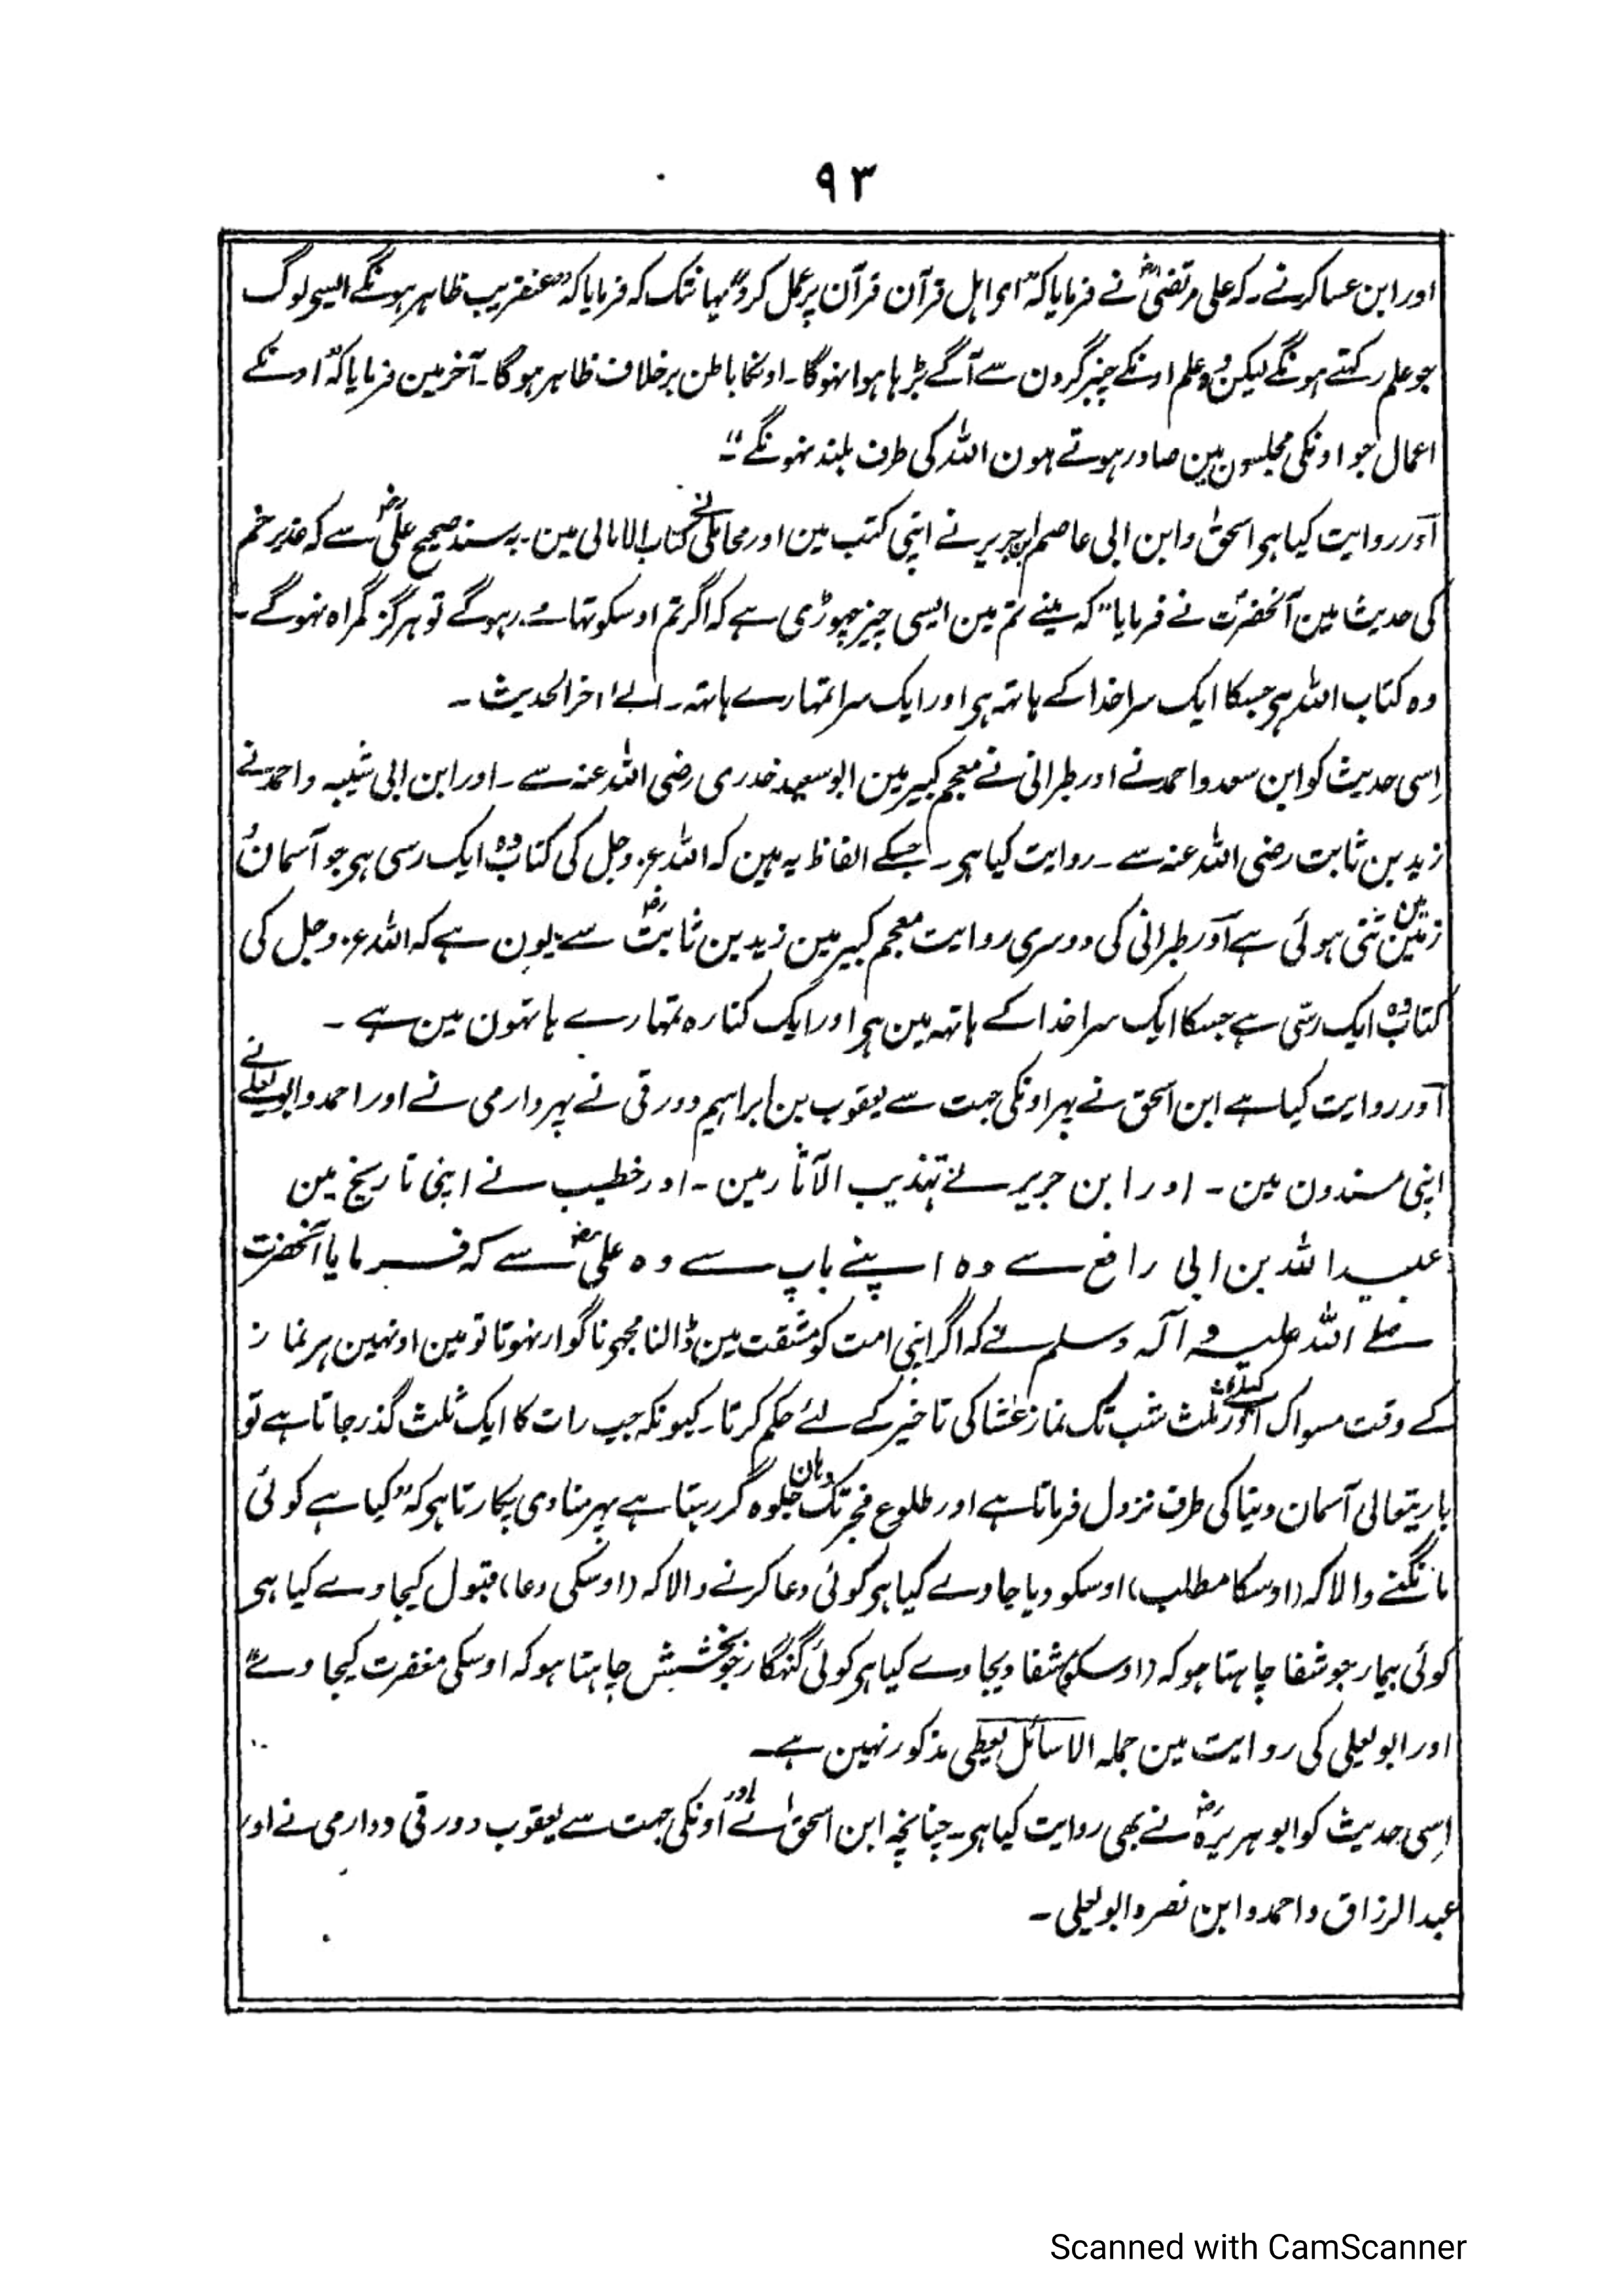 ۹۳
اور ابن عساکر نے۔ کہ علی مرتضیٰؓ نے فرمایا کہ "ای اہل قرآن قرآن پر عمل کرو" یہانتک کہ فرمایا کہ "عنقریب ظاہر ہونگے ایسے لوگ
جو علم رکہتے ہونگے لیکن وہ علم اونکے چنبر گردن سے آگے بڑہا ہوا نہوگا۔ اونکا باطن برخلاف ظاہر ہوگا۔ آخر مین فرمایا کہ "اونکے
اعمال جو اونکی مجلسون مین صادر ہوتے ہون اللہ کی طرف بلند نہونگے"۔
اور روایت کیا ہی اسحٰق وابن ابی عاصم وابن جریر نے اپنی کتب مین اور محاملی نے کتاب الامالی مین۔ بہ سند صحیح علیؓ سے کہ غدیر خم
کی حدیث مین آنحضرتؐ نے فرمایا "کہ مینے تم مین ایسی چیز چہوڑی ہے کہ اگر تم اوسکو تہامے رہوگے تو ہرگز گمراہ نہوگے۔
وہ کتاب اللہ ہی جسکا ایک سرا خدا کے ہاتہ ہی اور ایک سرا تمہارے ہاتہ۔ الے اخر الحدیث۔
اِسی حدیث کو ابن سعد واحمد نے اور طبرانی نے معجم کبیر مین ابو سعید خدری رضی اللہ عنہ سے۔ اور ابن ابی شیبہ واحمد نے
زید بن ثابت رضی اللہ عنہ سے۔ روایت کیا ہی۔ جسکے الفاظ یہ ہین کہ اللہ عز وجل کی کتاب وہ ایک رسی ہی جو آسمان و
زمین مین تنی ہوئی ہے اور طبرانی کی دوسری روایت معجم کبیر مین زید بن ثابتؓ سے یون ہے کہ اللہ عز وجل کی
کتاب وہ ایک رسّی ہے جسکا ایک سرا خدا کے ہاتہ مین ہی اور ایک کنارہ تمہارے ہاتہون مین ہے۔
اور روایت کیا ہے ابن اسحٰق نے پہر اونکی جہت سے یعقوب بن ابراہیم دورقی نے پہر دارمی نے اور احمد وابو یعلے نے
اپنی مسندون مین۔ اور ابن جریر نے تہذیب الآثار مین۔ اور خطیب نے اپنی تاریخ مین
عبیداللہ بن ابی رافع سے وہ اپنے باپ سے وہ علیؓ سے کہ فرمایا آنحضرت
صلے اللہ علیہ وآلہ وسلم نے کہ اگر اپنی امت کو مشقت مین ڈالنا مجہے ناگوار نہوتا تو مین اونہین ہر نماز
کے وقت مسواک کیلئے اور ثلث شب تک نماز عشا کی تاخیر کے لئے حکم کرتا۔ کیونکہ جب رات کا ایک ثلث گذر جاتا ہے تو
باریتعالی آسمان دنیا کی طرف نزول فرماتا ہے اور طلوع فجر تک وہان جلوہ گر رہتا ہے پہر منادی پکارتا ہی کہ "کیا ہے کوئی
مانگنے والا کہ (اوسکا مطلب) اوسکو دیا جاوے کیا ہی کوئی دعا کرنے والا کہ (اوسکی دعا) قبول کیجاوے کیا ہی
کوئی بیمار جو شفا چاہتا ہو کہ (اوسکو) شفا دیجاوے کیا ہی کوئی گنہگار جو بخشش چاہتا ہو کہ اوسکی مغفرت کیجاوے"
اور ابو یعلی کی روایت مین جملہ الا سائل یعطی مذکور نہین ہے۔
اِسی حدیث کو ابو ہریرہؓ نے بھی روایت کیا ہی۔ چنانچہ ابن اسحٰق نے اور اونکی جہت سے یعقوب دورقی ودارمی نے اور
عبدالرزاق واحمد وابن نصر وابو یعلی۔
Scanned with CamScanner